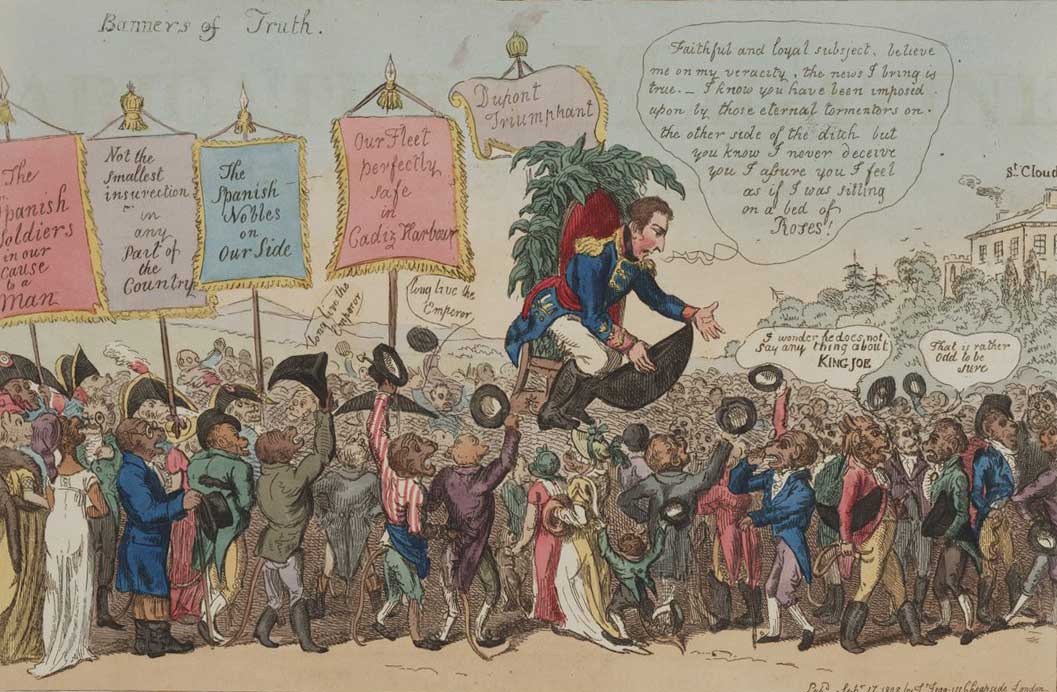 Banners of Truth.
The
Spanish
Soldiers
in our
Cause
to a
Man
Not the
smallest
insurection
in
any
Part of
the
Country
The
Spanish
Nobles
on
Our Side
Our Fleet
perfectly
safe
in
Cadiz Harbour
Dupont
Triumphant
Faithful and loyal subsject, believe
me on my veracity, the news I bring is
true. — I know you have been imposed
upon by those eternal tormentors on
the other side of the ditch but
you know I never deceive
you I assure you I feel
as if I was sitting
on a bed of
Roses!
St. Cloud
Long live the
Emperor
long live the
Emperor
I wonder he does not
say any thing about
KING JOE
That is rather
Odd to be
sure
Pubd. Sepr. 17. 1808 by
Cheapside London